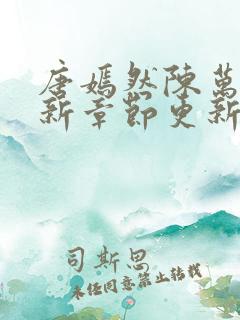 唐嫣然陳萬
新章節更新
司斯思
未经同意禁止转载